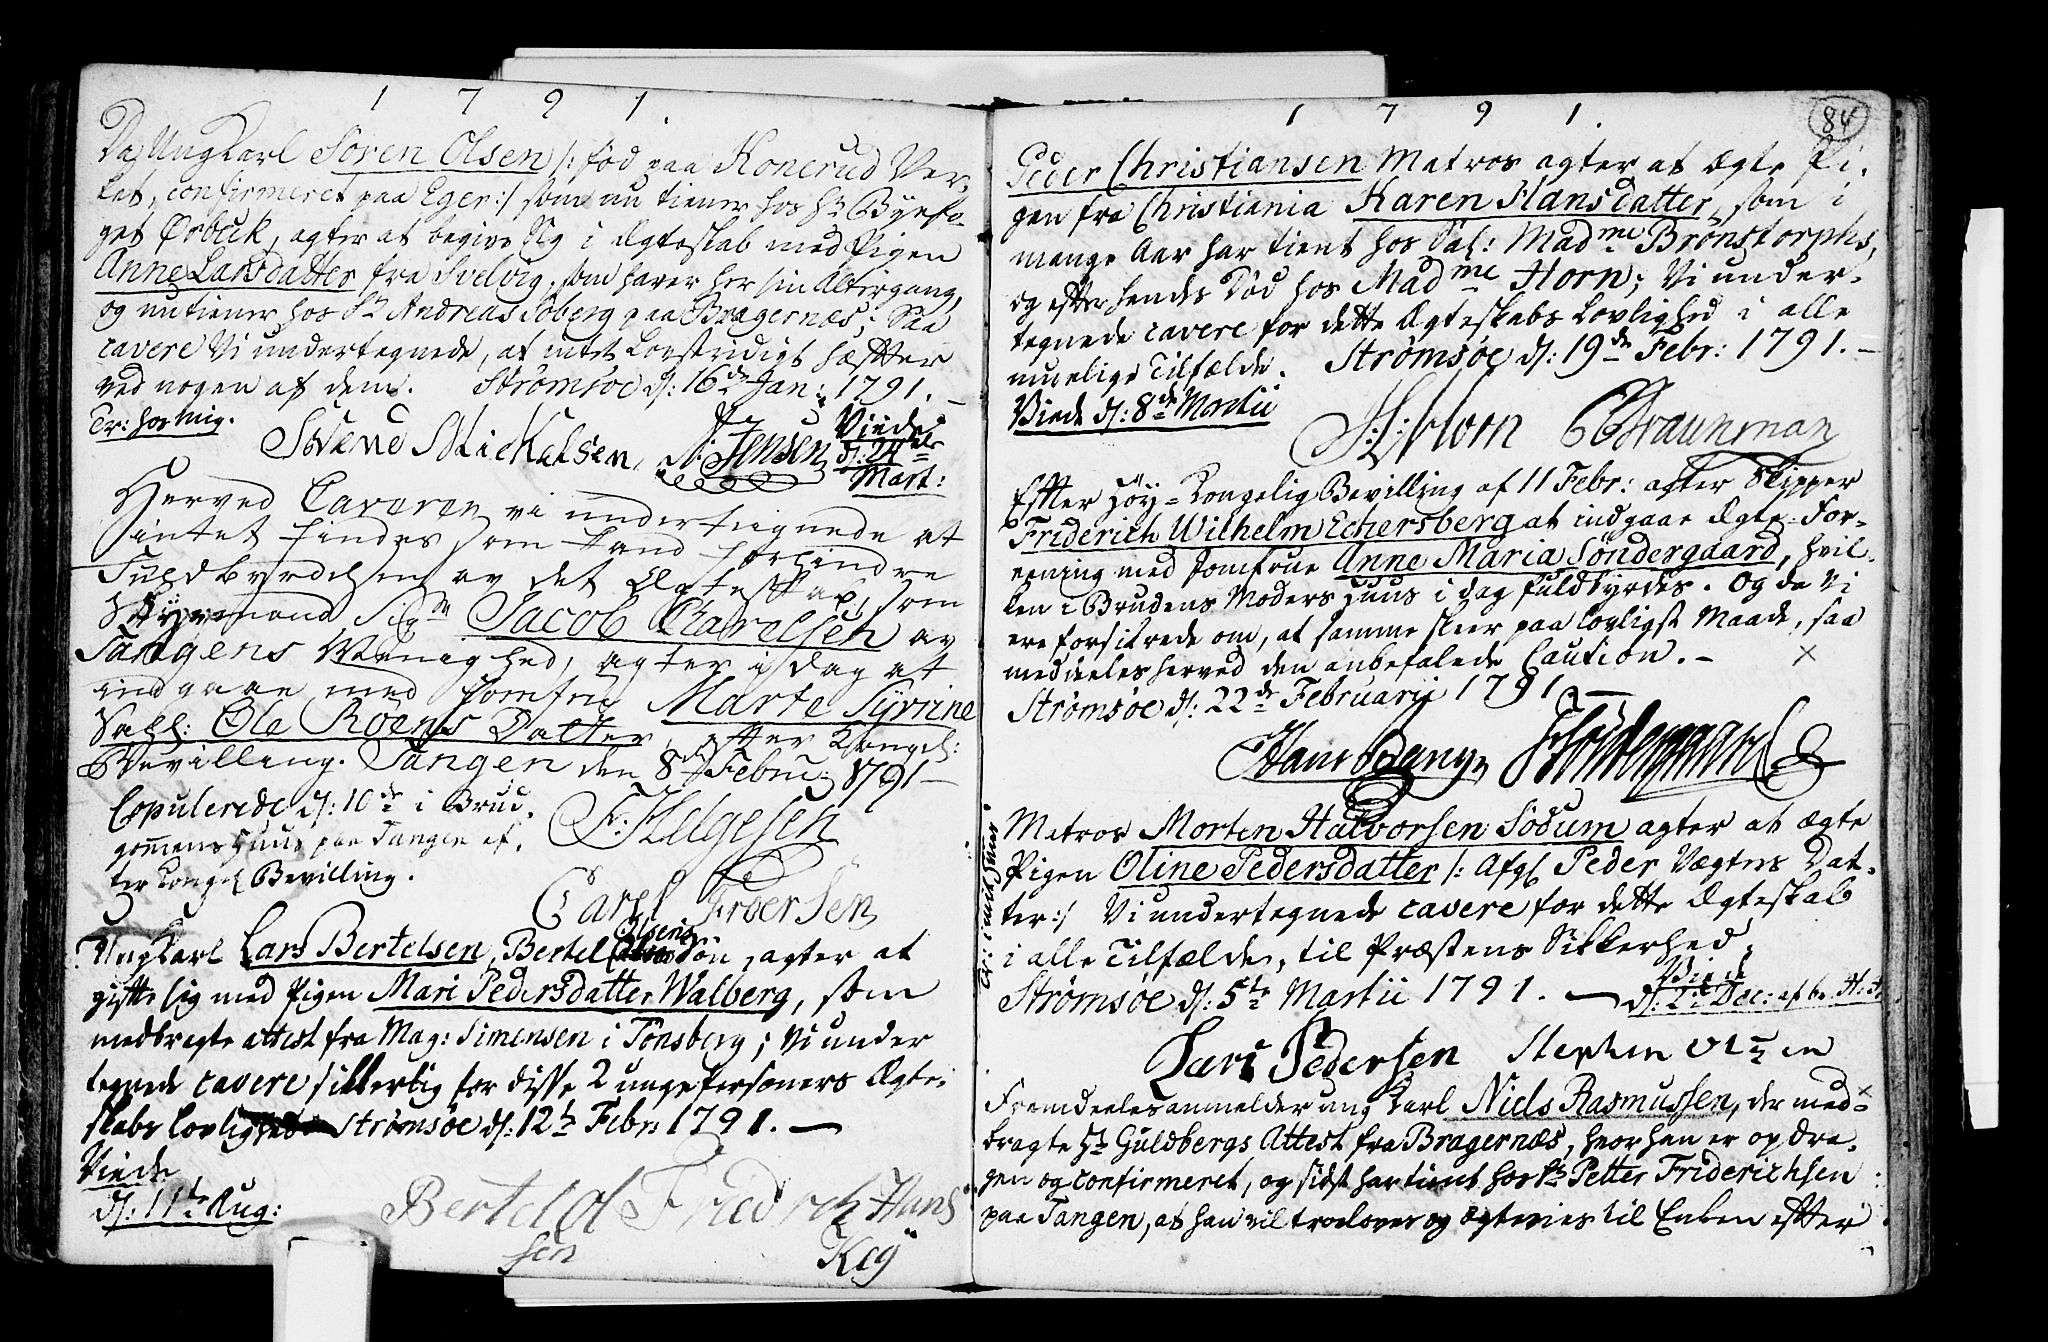 1 7 9 1.
Da Ung Karl Sören Olsen /: fød paa Konerud Ver-
ket, confirmeret paa Eger :/ som nu tiener hos Hr Byefo-
get Ørbeck, agter at begive sig i Ægteskab med Pigen
Anne Larsdatter fra Svelvig, som haver her sin Altergang,
og nu tiener hos Sr Andreas Soberg paa Bragernæs; Saa
cavere Vi undertegnede, at intet Lovstridigt hæfter
ved nogen af dem. Strømsøe d: 16de Jan: 1791. –
Tr: hos mig.
Sövend Mickelsen, N: Jensen
Viede
d: 24de
Mart:
Herved Caveren vi undertegnede at
intet findes som kand forhindre
Fuldbyrdelsen av det Ægteskab, som
Styrmand Sigr Jacob Carelsen av
Tangens Menighed, agter i dag at
indgaae med Jomfru Marte Syrrine
Sahl: Ole Röens Datter, efter Kongel:
Bevilling. Tangen den 8de Febru: 1791 –
Copulerede d: 10de i Brud-
gomens Huus paa Tangen ef-
ter Kongel Bevilling.
F: Helgesen
Carel Froersen
Ung Karl Lars Bertelsen, Bertel Olsens Søn, agter at
gifte sig med Pigen Mari Pedersdatter Walberg, som
medbragte attest fra Mag: Simensen i Tonsberg; Vi under
tegnede cavere sikkerlig for disse 2 unge Personers Ægte-
skabs Lovlighed Strømsøe d: 12te Febr: 1791. –
Viede
d: 11te Aug:
Bertel Ol Friedrich Hans
sen Keÿ
1 7 9 1.
84
Peder Christiansen Matros agter at Ægte Pi-
gen fra Christiania Karen Hansdatter, som i
mange Aar har tient hos Sal: Madme Brönstorphs,
og efter hendes Död hos Madme Horn; Vi under-
tegnede cavere for dette Ægteskabs Lovlighed i alle
muelige Tilfælde. Strømsøe d: 19de Febr: 1791. –
Viede d: 8de Martii
H: Horn Braunman
Efter Höy-Kongelig Bevilling af 11 Febr: agter Skipper
Friderich Wilhelm Echersberg at indgaae Ægte-For-
eening med Jomfrue Anne Maria Söndergaard, hvil-
ken i Brudens Moders Huus i dag fuldbyrdes. Og da Vi
ere forsikrede om, at samme skeer paa lovligst Maade, saa
meddeeles herved den anbefalede Caution. – ×
Strømsøe d: 22de Februarii 1791 –
Hans Bang Söndergaard
Matros Morten Halvorsen Sodum agter at ægte
Pigen Oline Pedersdatter /: Afgl Peder Vægters Dat-
ter :/ Vi undertegnede cavere for dette Ægteskab
i alle Tilfælde, til Præstens Sikkerhed.
Strømsøe d: 5te Martii 1791. –
Viede
d: 2 Dec: af hr H: H
Lars Pedersen Stephen Olsen
Fremdeeles anmelder ung Karl Niels Rasmussen, der med- ×
bragte Hr Guldbergs Attest fra Bragernæs, hvor han er opdra-
gen og confirmeret, og sidst har tient hos Sr Petter Friderichsen
paa Tangen, at han vil trolover og ægtevies til Enken efter